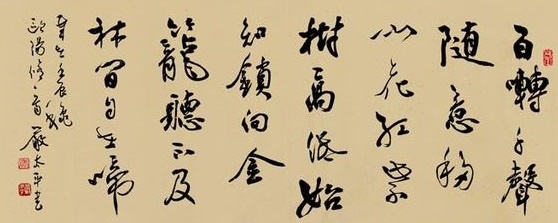 百啭千聲
隨意移
山花红紫
樹高低始
知鎖向金
籠聽不及
林間自在啼
歐陽修
嚴太平書